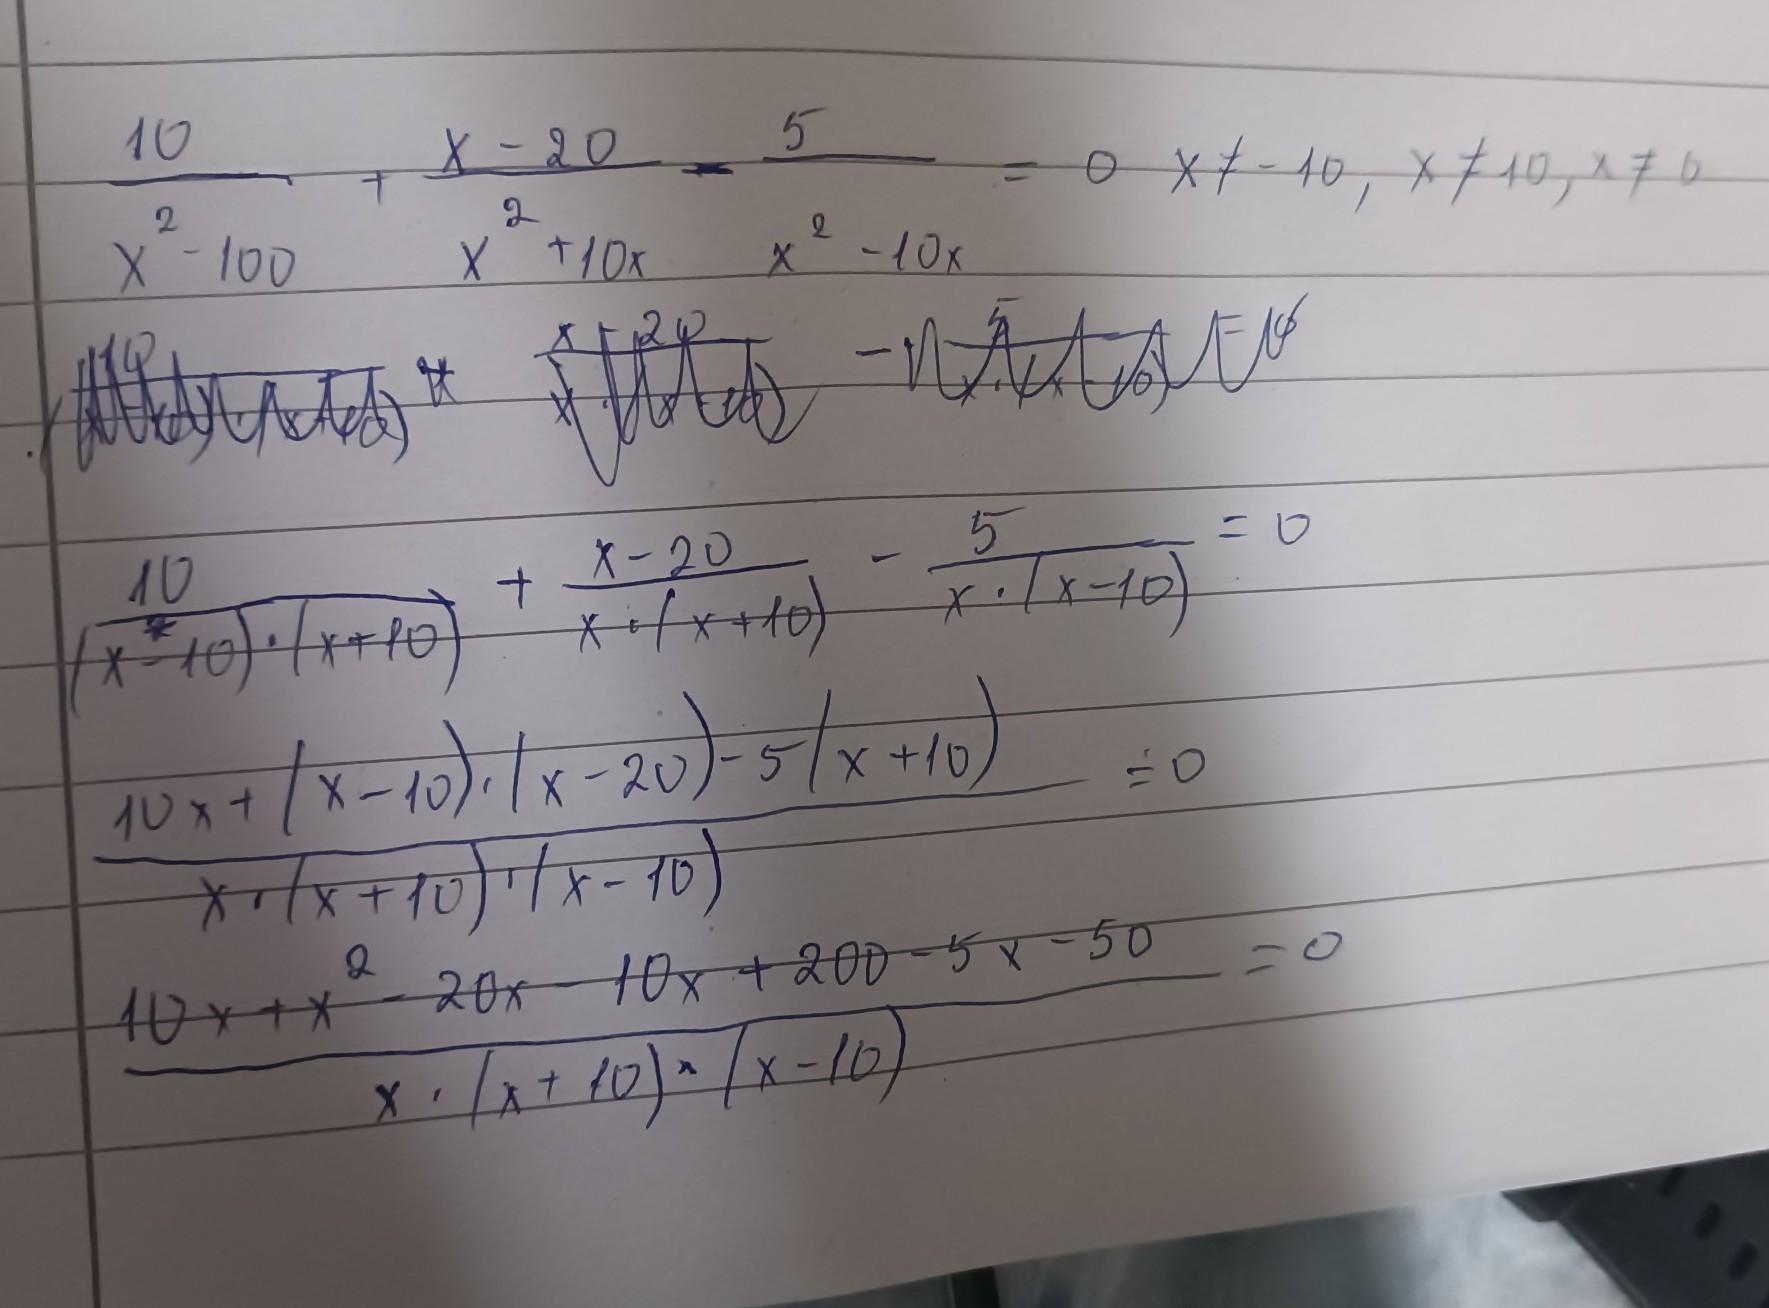 10/(x²-100) + (x-20)/(x²+10x) - 5/(x²-10x) = 0 x≠-10, x≠10, x≠0
10/((x-10)·(x+10)) + (x-20)/(x·(x+10)) - 5/(x·(x-10)) = 0
(10x+(x-10)·(x-20)-5(x+10))/(x·(x+10)·(x-10)) = 0
(10x+x²-20x-10x+200-5x-50)/(x·(x+10)·(x-10)) = 0